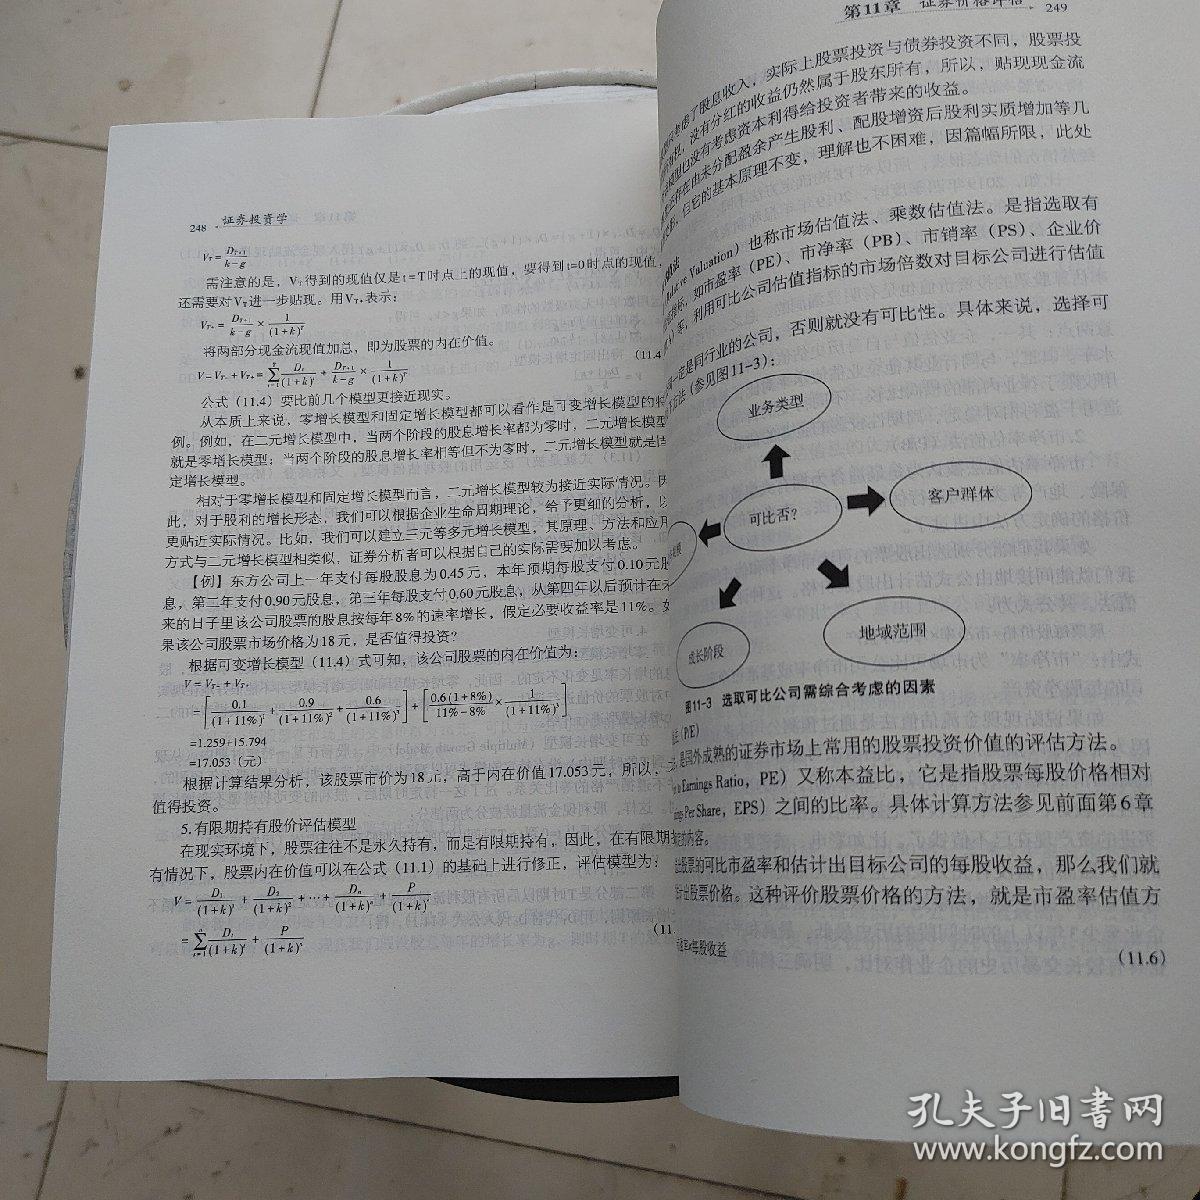 248 证券投资学
V_T = D_{T+1}/(k-g)
需注意的是，V_T得到的现值仅是t=T时点上的现值，要得到t=0时点的现值，
还需要对V_T进一步贴现。用V_{T+}表示：
V_{T+} = D_{T+1}/(k-g) × 1/(1+k)^T
将两部分现金流现值加总，即为股票的内在价值。
(11.4
公式（11.4）要比前几个模型更接近现实。
从本质上来说，零增长模型和固定增长模型都可以看作是可变增长模型的特
例。例如，在二元增长模型中，当两个阶段的股息增长率都为零时，二元增长模型
就是零增长模型；当两个阶段的股息增长率相等但不为零时，二元增长模型就是固
定增长模型。
相对于零增长模型和固定增长模型而言，二元增长模型较为接近实际情况。因
此，对于股利的增长形态，我们可以根据企业生命周期理论，给予更细的分析，以
更贴近实际情况。比如，我们可以建立三元等多元增长模型，其原理、方法和应用
方式与二元增长模型相类似，证券分析者可以根据自己的实际需要加以考虑。
【例】东方公司上一年支付每股股息为0.45元，本年预期每股支付0.10元股
息，第二年支付0.90元股息，第三年每股支付0.60元股息，从第四年以后预计在未
来的日子里该公司股票的股息按每年8%的速率增长，假定必要收益率是11%。如
果该公司股票市场价格为18元，是否值得投资？
根据可变增长模型（11.4）式可知，该公司股票的内在价值为：
V = V_{T-} + V_{T+}
= [0.1/(1+11%) + 0.9/(1+11%)^2 + 0.6/(1+11%)^3] + [0.6(1+8%)/(11%-8%) × 1/(1+11%)^3]
=1.259+15.794
=17.053（元）
根据计算结果分析，该股票市价为18元，高于内在价值17.053元，所以，
值得投资。
5.有限期持有股价评估模型
在现实环境下，股票往往不是永久持有，而是有限期持有，因此，在有限期持
有情况下，股票内在价值可以在公式（11.1）的基础上进行修正，评估模型为：
V = D_1/(1+k) + D_2/(1+k)^2 + ⋯ + D_n/(1+k)^n + P/(1+k)^n
= Σ_{t=1}^{n} D_t/(1+k)^t + P/(1+k)^n
(11.
第11章 证券价格评估 249
考虑了股息收入，实际上股票投资与债券投资不同，股票投
没有分红的收益仍然属于股东所有，所以，贴现现金流
模型也没有考虑资本利得给投资者带来的收益。
存在由未分配盈余产生股利、配股增资后股利实质增加等几
但它的基本原理不变，理解也不困难，因篇幅所限，此处
Valuation）也称市场估值法、乘数估值法。是指选取有
指标，如市盈率（PE）、市净率（PB）、市销率（PS）、企业价
等，利用可比公司估值指标的市场倍数对目标公司进行估值
一定是同行业的公司，否则就没有可比性。具体来说，选择可
方法（参见图11-3）：
业务类型
可比否？
客户群体
成长阶段
地域范围
图11-3 选取可比公司需综合考虑的因素
(P/E)
是国外成熟的证券市场上常用的股票投资价值的评估方法。
Earnings Ratio，PE）又称本益比，它是指股票每股价格相对
Per Share，EPS）之间的比率。具体计算方法参见前面第6章
内容。
股票的可比市盈率和估计出目标公司的每股收益，那么我们就
计出股票价格。这种评价股票价格的方法，就是市盈率估值方
每股收益
(11.6)
孔夫子旧书网
www.kongfz.com